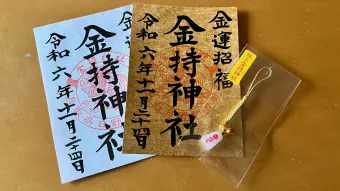 金持神社
令和六年十一月二十四日
金運招福
金持神社
令和六年十一月二十四日